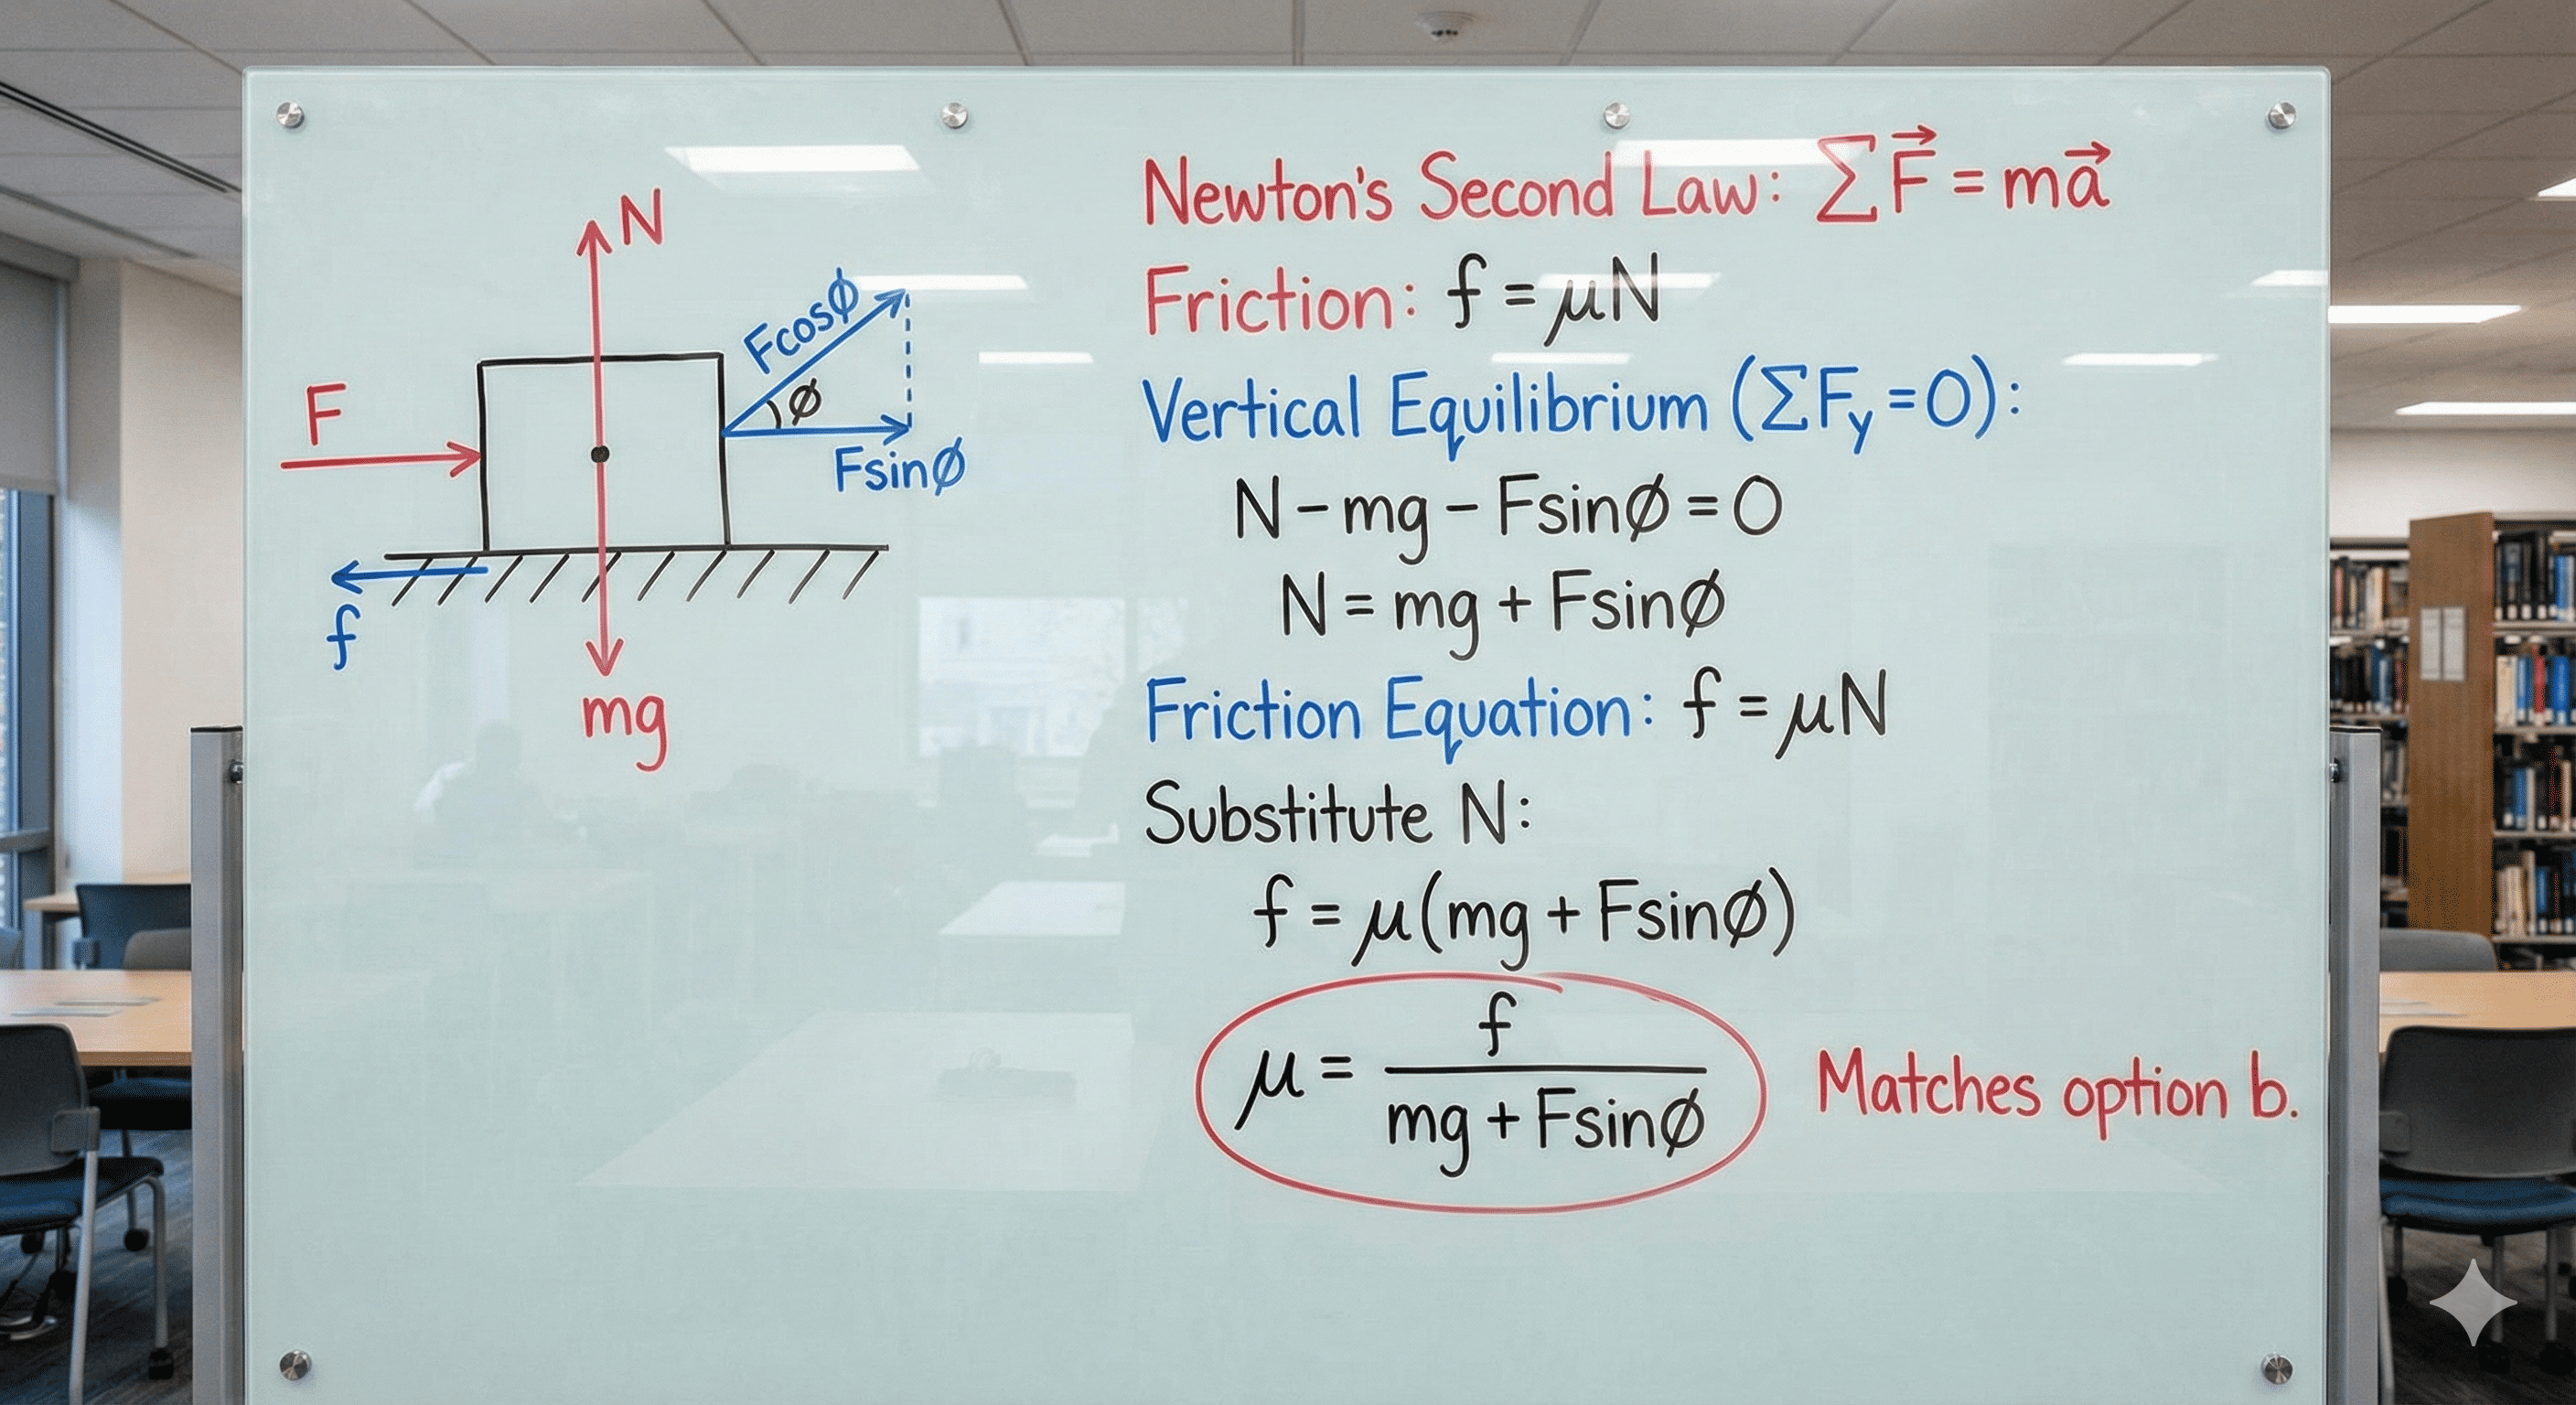 N
F
Fcosφ
φ
Fsinφ
f
mg
Newton's Second Law: ∑F⃗ = ma⃗
Friction: f = μN
Vertical Equilibrium (∑Fy = 0):
N - mg - Fsinφ = 0
N = mg + Fsinφ
Friction Equation: f = μN
Substitute N:
f = μ(mg + Fsinφ)
μ = f / (mg + Fsinφ) Matches option b.